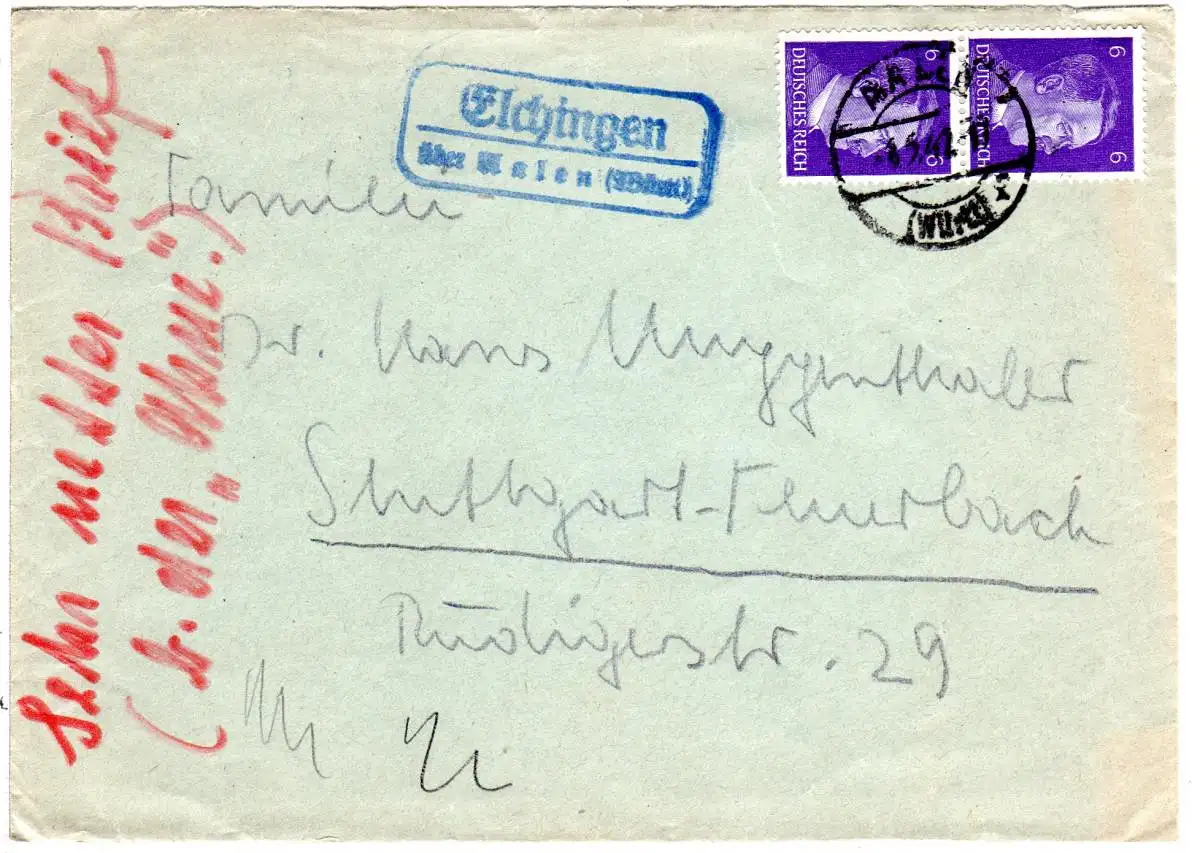 Elchingen
über Aalen (Württ)
DEUTSCHES REICH
6
6
DEUTSCHES REICH
6
6
AALEN
5.42
(Württ)
Familie
Dr. Hans Muggenthaler
Stuttgart-Feuerbach
Rüdigerstr. 29
Brief
(b. den "